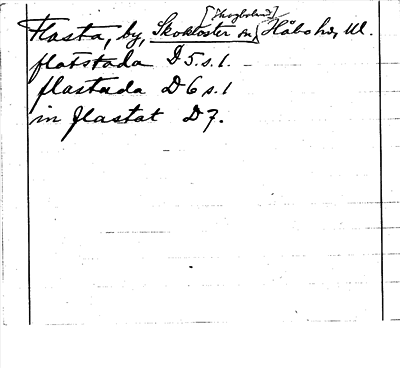 Flasta, by, Skokloster sn, Håbo hd, Upl.
flatstada D 5. s. 1.
flastada D 6 s. 1
in flastat D 7.